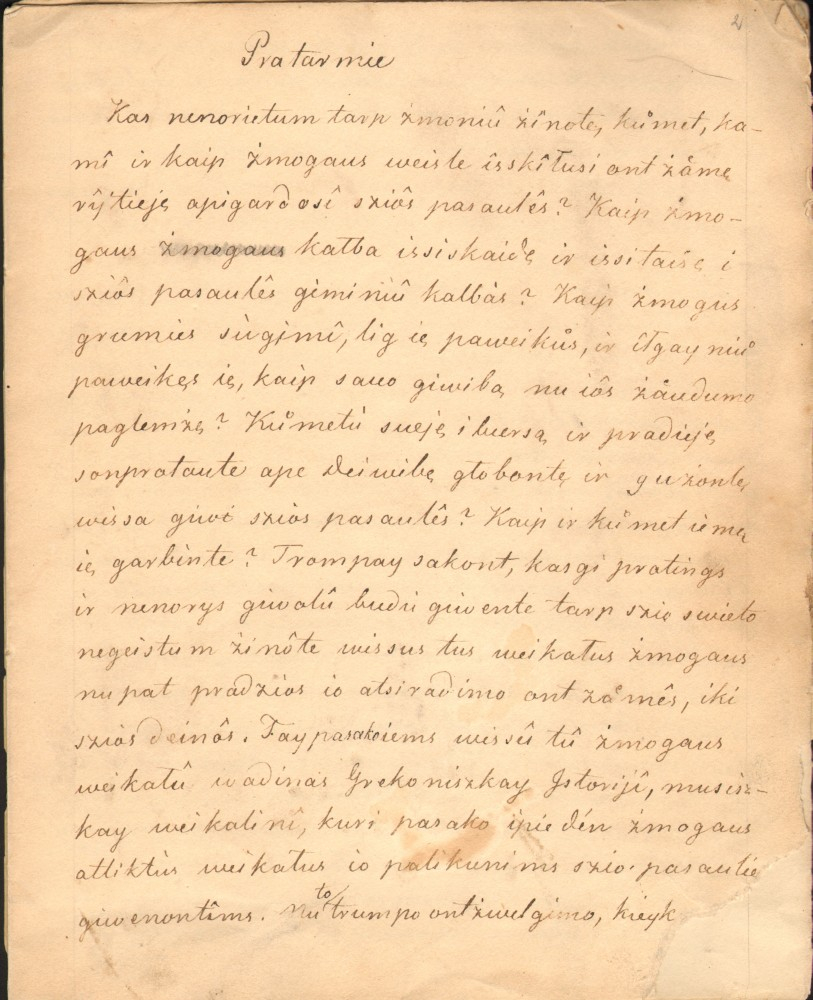 2
Pratarmie
Kas nenorietum tarp żmoniû żinotę, kůmet, ka-
mî ir kaip żmogaus weisle îsskîłusi ont żåmę
rŷtieję apigardosî sziôs pasaulês? Kaip żmo-
gaus żmogaus kałba issiskaidę ir issitaisę i
sziôs pasaulês giminiû kałbas? Kaip żmogus
grumies sugimî, lig ię paweikůs, ir îłgay niů
paweikęs ię, kaip sawo giwibą nu iôs żåudumo
paglemżę? Kůmetù sueję i buersą ir pradieję
sonprotaute ape deiwibę głobontę ir gużontę
wissa giwi sziôs pasaulês? Kaip ir kůmet iemę
ię garbinte? Trompay sakont, kasgi protings
ir nenorys giwołû budu giwente tarp szię swieto
negeistum żinôte wissus tus weikałus żmogaus
nu pat pradżios io atsiradimo ont żåmês, iki
sziôs deinôs. Tay pasakoiems wissû tû żmogaus
weikałû wadinas Grekoniszkay Jstorijî, musisz-
kay weikalinî, kuri pasako ipiedén żmogaus
atliktùs weikałus io palikunims szio pasaulie
giwenontîms. Nu to trumpo ontżwelgimo, kieyk